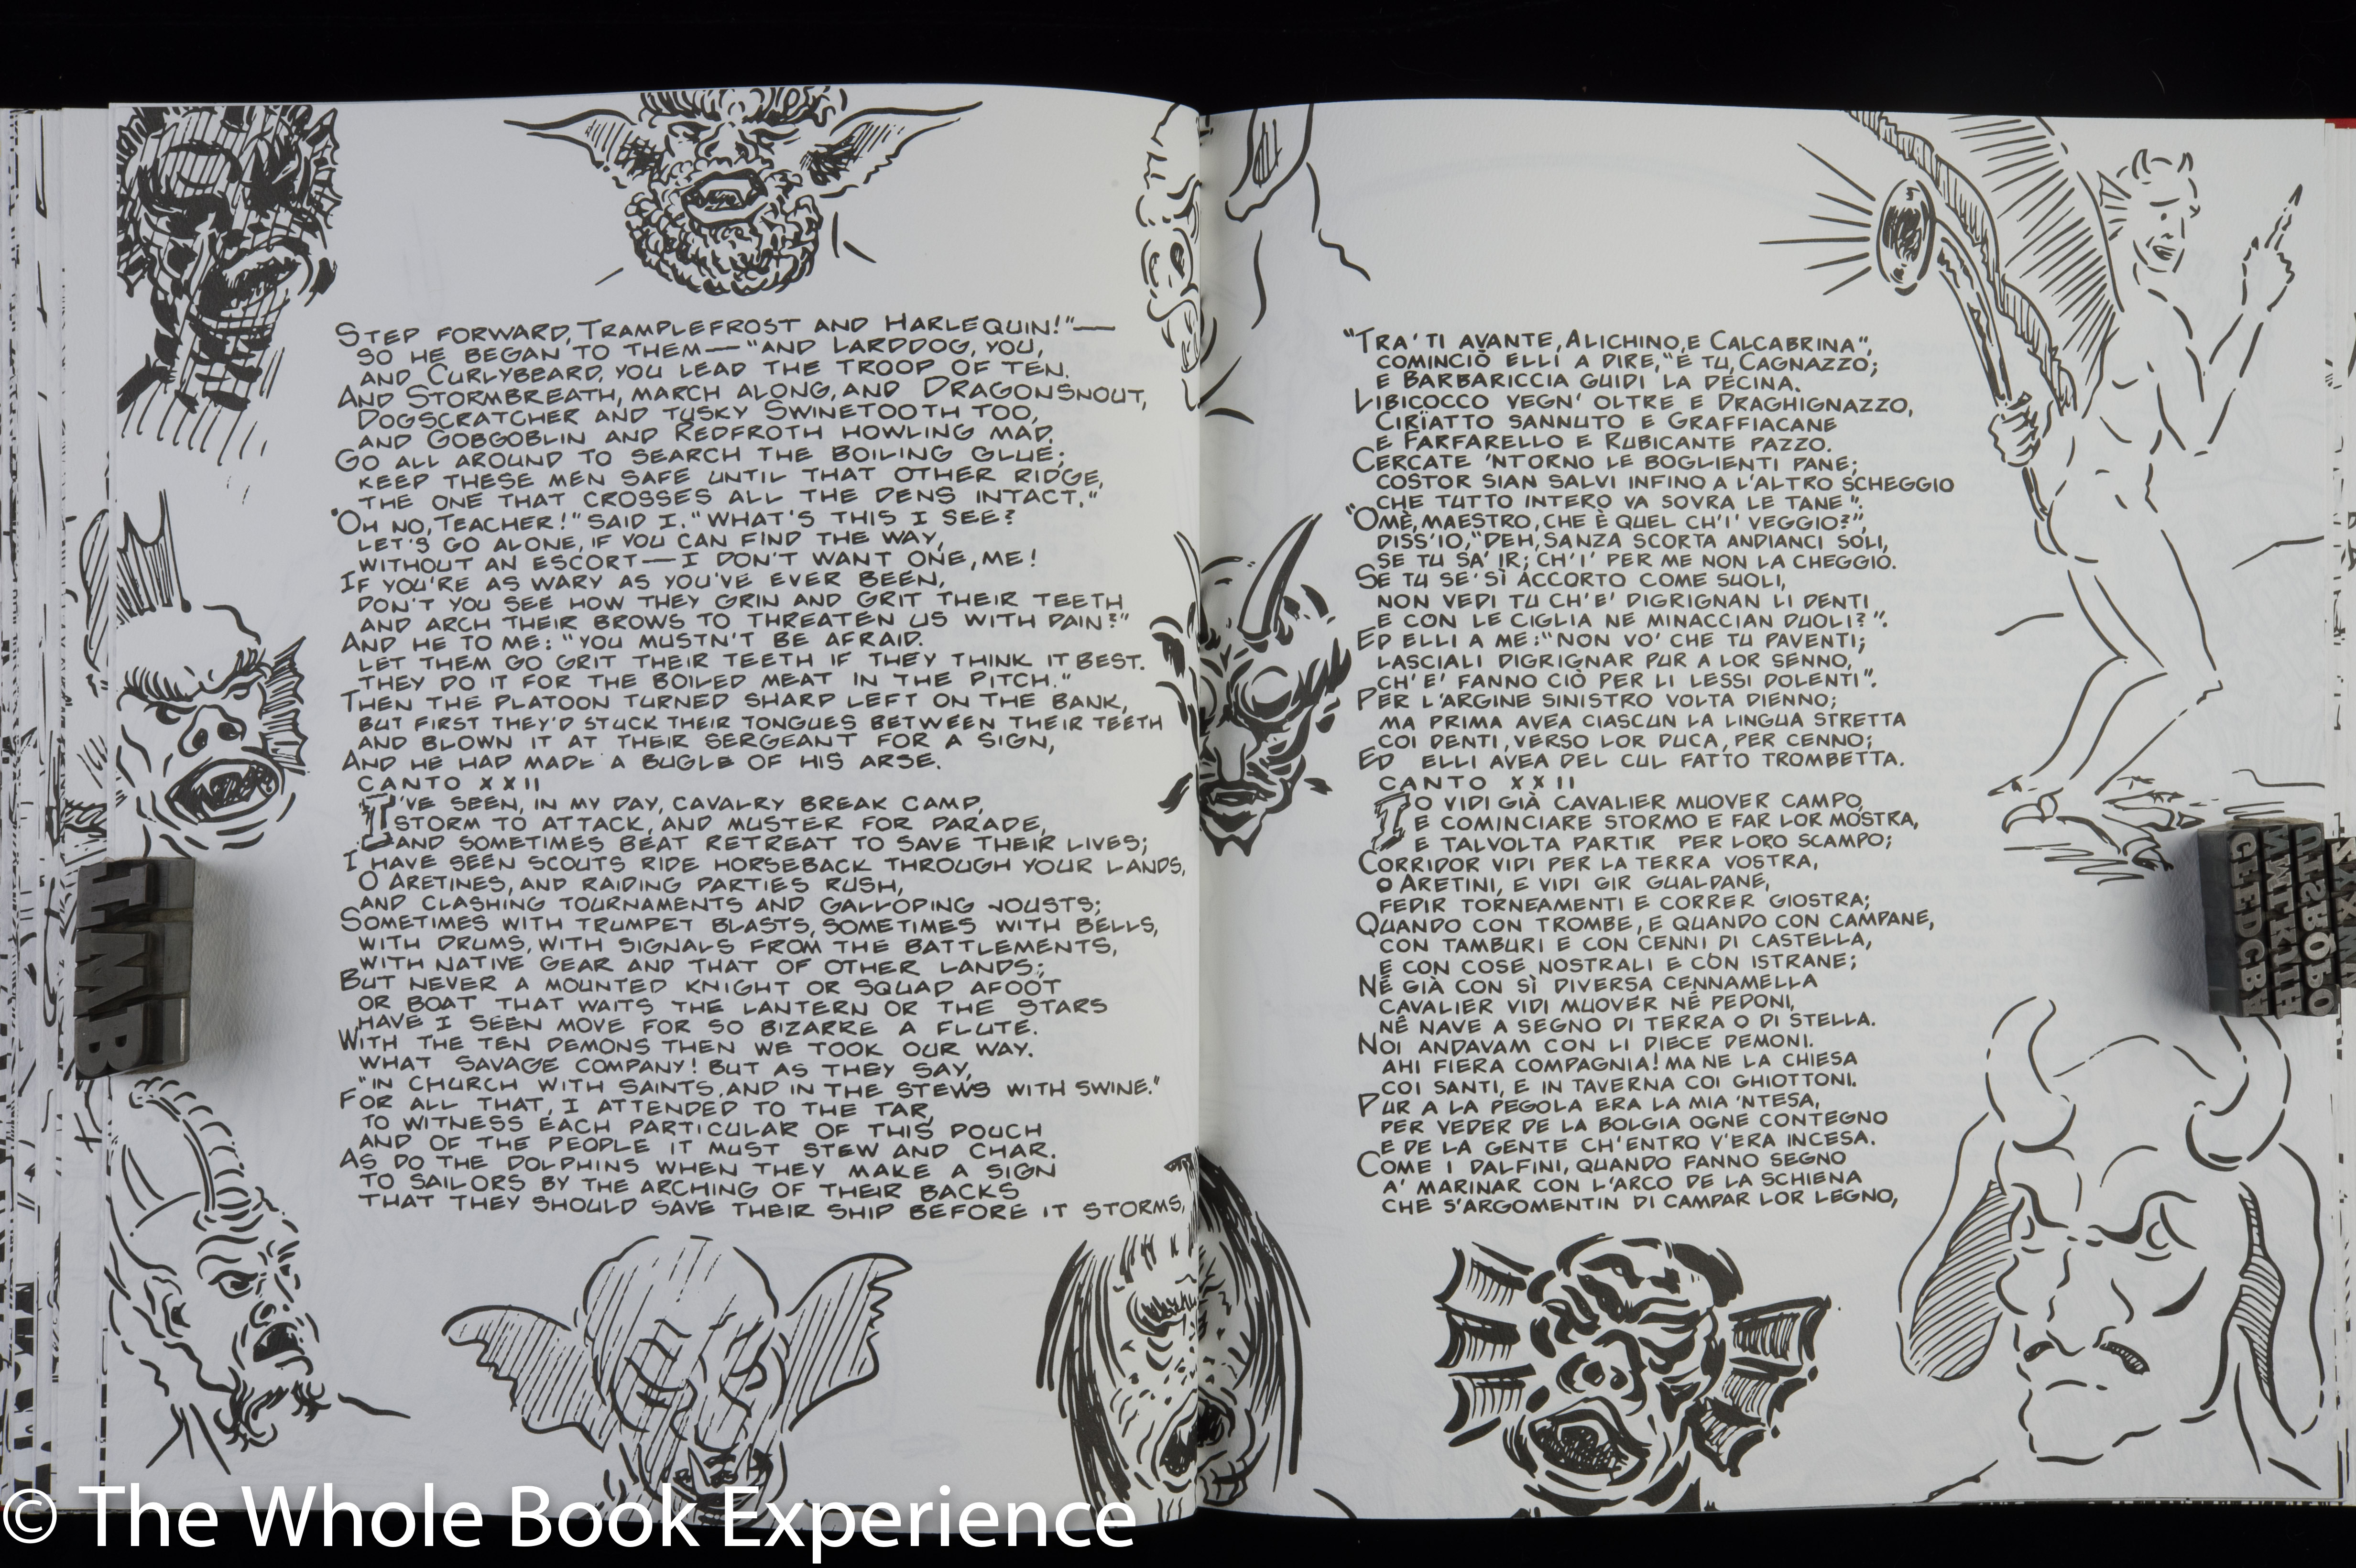 STEP FORWARD, TRAMPLEFROST AND HARLEQUIN!"—
SO HE BEGAN TO THEM—"AND LARDDOG, YOU,
AND CURLYBEARD, YOU LEAD THE TROOP OF TEN.
AND STORMBREATH, MARCH ALONG, AND DRAGONSNOUT,
DOGSCRATCHER AND TUSKY SWINETOOTH TOO,
AND GOBGOBLIN AND REDFROTH HOWLING MAD.
GO ALL AROUND TO SEARCH THE BOILING GLUE;
KEEP THESE MEN SAFE UNTIL THAT OTHER RIDGE,
THE ONE THAT CROSSES ALL THE DENS INTACT."
"OH NO, TEACHER!" SAID I. "WHAT'S THIS I SEE?
LET'S GO ALONE, IF YOU CAN FIND THE WAY,
WITHOUT AN ESCORT—I DON'T WANT ONE, ME!
IF YOU'RE AS WARY AS YOU'VE EVER BEEN,
DON'T YOU SEE HOW THEY GRIN AND GRIT THEIR TEETH
AND ARCH THEIR BROWS TO THREATEN US WITH PAIN?"
AND HE TO ME: "YOU MUSTN'T BE AFRAID.
LET THEM GO GRIT THEIR TEETH IF THEY THINK IT BEST.
THEY DO IT FOR THE BOILED MEAT IN THE PITCH."
THEN THE PLATOON TURNED SHARP LEFT ON THE BANK,
BUT FIRST THEY'D STUCK THEIR TONGUES BETWEEN THEIR TEETH
AND BLOWN IT AT THEIR SERGEANT FOR A SIGN,
AND HE HAD MADE A BUGLE OF HIS ARSE.
CANTO XXII
I'VE SEEN, IN MY DAY, CAVALRY BREAK CAMP,
STORM TO ATTACK, AND MUSTER FOR PARADE,
AND SOMETIMES BEAT RETREAT TO SAVE THEIR LIVES;
I HAVE SEEN SCOUTS RIDE HORSEBACK THROUGH YOUR LANDS,
O ARETINES, AND RAIDING PARTIES RUSH,
AND CLASHING TOURNAMENTS AND GALLOPING JOUSTS;
SOMETIMES WITH TRUMPET BLASTS, SOMETIMES WITH BELLS,
WITH DRUMS, WITH SIGNALS FROM THE BATTLEMENTS,
WITH NATIVE GEAR AND THAT OF OTHER LANDS;
BUT NEVER A MOUNTED KNIGHT OR SQUAD AFOOT
OR BOAT THAT WAITS THE LANTERN OR THE STARS
HAVE I SEEN MOVE FOR SO BIZARRE A FLUTE.
WITH THE TEN DEMONS THEN WE TOOK OUR WAY.
WHAT SAVAGE COMPANY! BUT AS THEY SAY,
"IN CHURCH WITH SAINTS, AND IN THE STEWS WITH SWINE."
FOR ALL THAT, I ATTENDED TO THE TAR,
TO WITNESS EACH PARTICULAR OF THIS POUCH
AND OF THE PEOPLE IT MUST STEW AND CHAR.
AS DO THE DOLPHINS WHEN THEY MAKE A SIGN
TO SAILORS BY THE ARCHING OF THEIR BACKS
THAT THEY SHOULD SAVE THEIR SHIP BEFORE IT STORMS,
"TRA' TI AVANTE, ALICHINO, E CALCABRINA",
COMINCIÒ ELLI A DIRE, "E TU, CAGNAZZO;
E BARBARICCIA GUIDI LA DECINA.
LIBICOCCO VEGN' OLTRE E DRAGHIGNAZZO,
CIRÏATTO SANNUTO E GRAFFIACANE
E FARFARELLO E RUBICANTE PAZZO.
CERCATE 'NTORNO LE BOGLIENTI PANE;
COSTOR SIAN SALVI INFINO A L'ALTRO SCHEGGIO
CHE TUTTO INTERO VA SOVRA LE TANE".
"OMÈ, MAESTRO, CHE È QUEL CH'I' VEGGIO?",
DISS'IO, "DEH, SANZA SCORTA ANDIANCI SOLI,
SE TU SA' IR; CH'I' PER ME NON LA CHEGGIO.
SE TU SE' SÌ ACCORTO COME SUOLI,
NON VEDI TU CH'E' DIGRIGNAN LI DENTI
E CON LE CIGLIA NE MINACCIAN DUOLI?".
ED ELLI A ME: "NON VO' CHE TU PAVENTI;
LASCIALI DIGRIGNAR PUR A LOR SENNO,
CH'E' FANNO CIÒ PER LI LESSI DOLENTI".
PER L'ARGINE SINISTRO VOLTA DIENNO;
MA PRIMA AVEA CIASCUN LA LINGUA STRETTA
COI DENTI, VERSO LOR DUCA, PER CENNO;
ED ELLI AVEA DEL CUL FATTO TROMBETTA.
CANTO XXII
IO VIDI GIÀ CAVALIER MUOVER CAMPO,
E COMINCIARE STORMO E FAR LOR MOSTRA,
E TALVOLTA PARTIR PER LORO SCAMPO;
CORRIDOR VIDI PER LA TERRA VOSTRA,
O ARETINI, E VIDI GIR GUALDANE,
FEDIR TORNEAMENTI E CORRER GIOSTRA;
QUANDO CON TROMBE, E QUANDO CON CAMPANE,
CON TAMBURI E CON CENNI DI CASTELLA,
E CON COSE NOSTRALI E CON ISTRANE;
NÉ GIÀ CON SÌ DIVERSA CENNAMELLA
CAVALIER VIDI MUOVER NÉ PEDONI,
NÉ NAVE A SEGNO DI TERRA O DI STELLA.
NOI ANDAVAM CON LI DIECE DEMONI.
AHI FIERA COMPAGNIA! MA NE LA CHIESA
COI SANTI, E IN TAVERNA COI GHIOTTONI.
PUR A LA PEGOLA ERA LA MIA 'NTESA,
PER VEDER DE LA BOLGIA OGNE CONTEGNO
E DE LA GENTE CH'ENTRO V'ERA INCESA.
COME I DALFINI, QUANDO FANNO SEGNO
A' MARINAR CON L'ARCO DE LA SCHIENA
CHE S'ARGOMENTIN DI CAMPAR LOR LEGNO,
© The Whole Book Experience